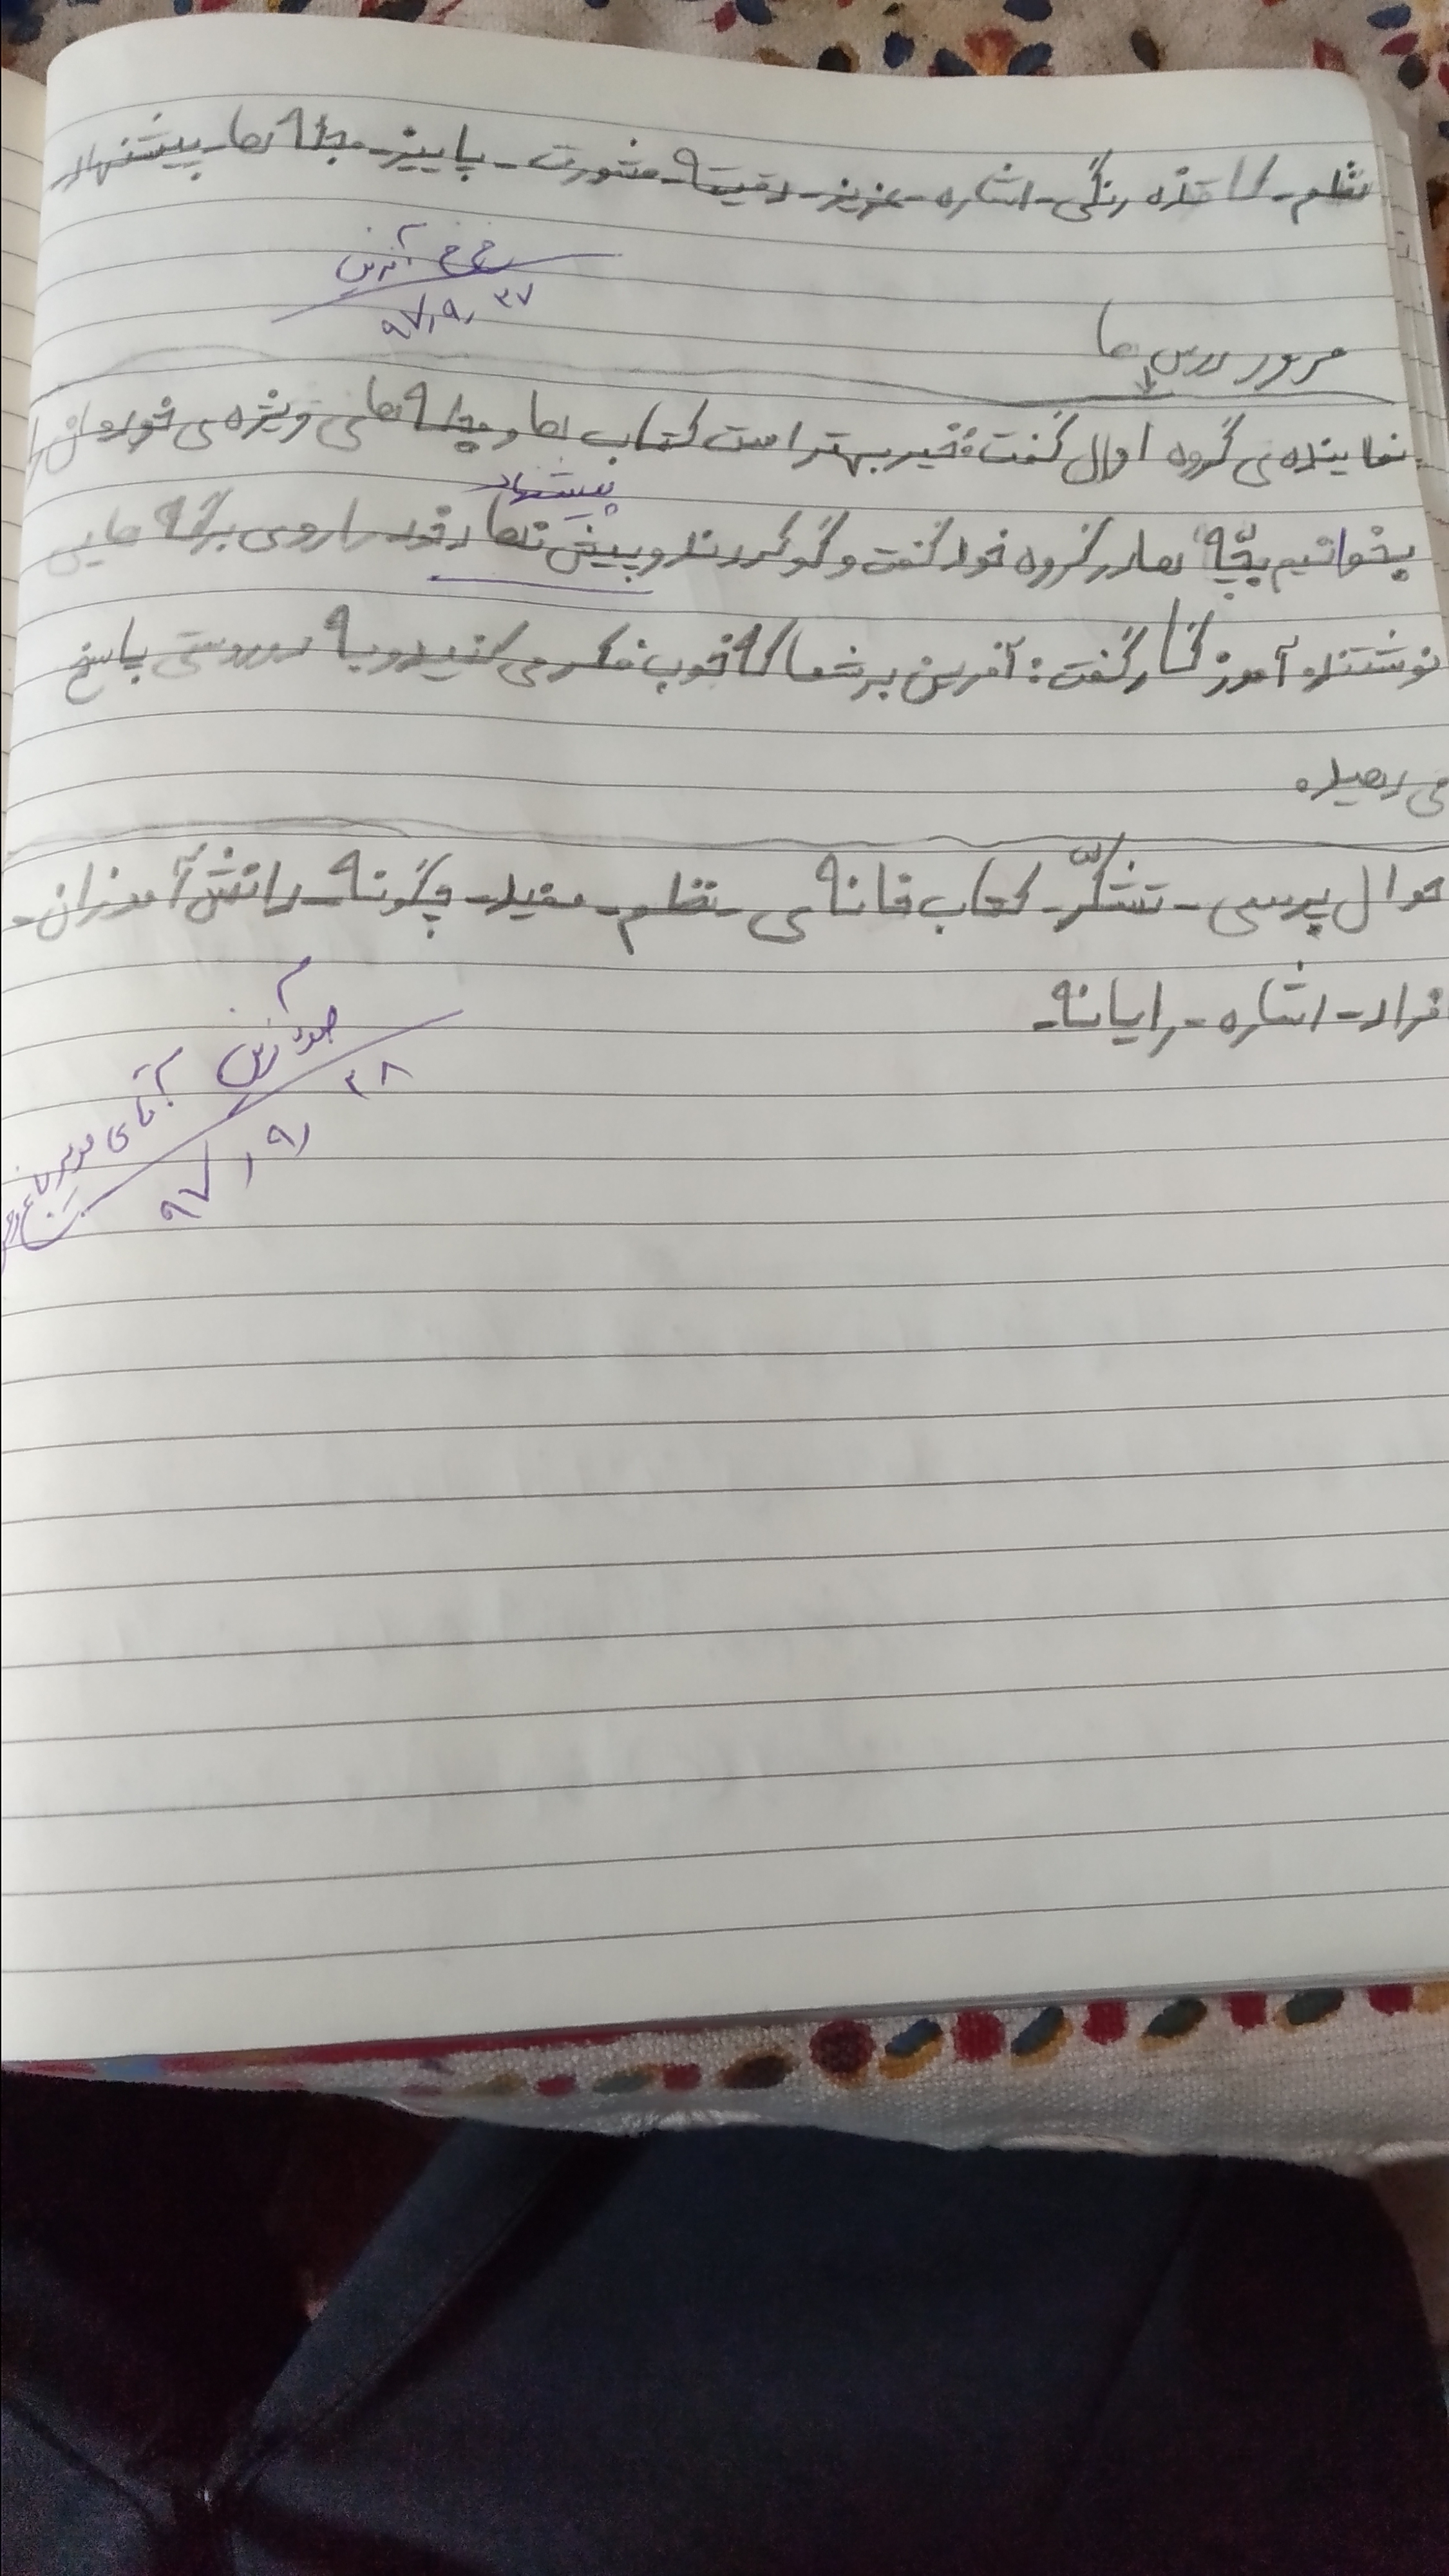 نظم - کاغذ رنگی - اشاره - عزیز - دقیقه - مشورت - پاییز - مجله ها - پیشنهاد
آفرین
۹۷٫۹٫۲۷
مرور درس ها
نماینده ی گروه اوال گفت: خیر بهتر است کتاب ها و مجله های ویژه ی خودمان را
پیشنهاد
بخوانیم بچّه ها در گروه خود گفت و گو کردند و پیش نها دخود را روی برگه هایی
نوشتند آموزگار گفت: آفرین بر شما که خوب فکر می کنید و به درستی پاسخ
می دهید.
حوال پرسی - تشکّر - کتاب خانه ی - نظم - مفید - چگونه - دانش آموزان -
فراد - اشاره - رایانه -
صد آفرین آقای
۹۷٫۹٫۲۸